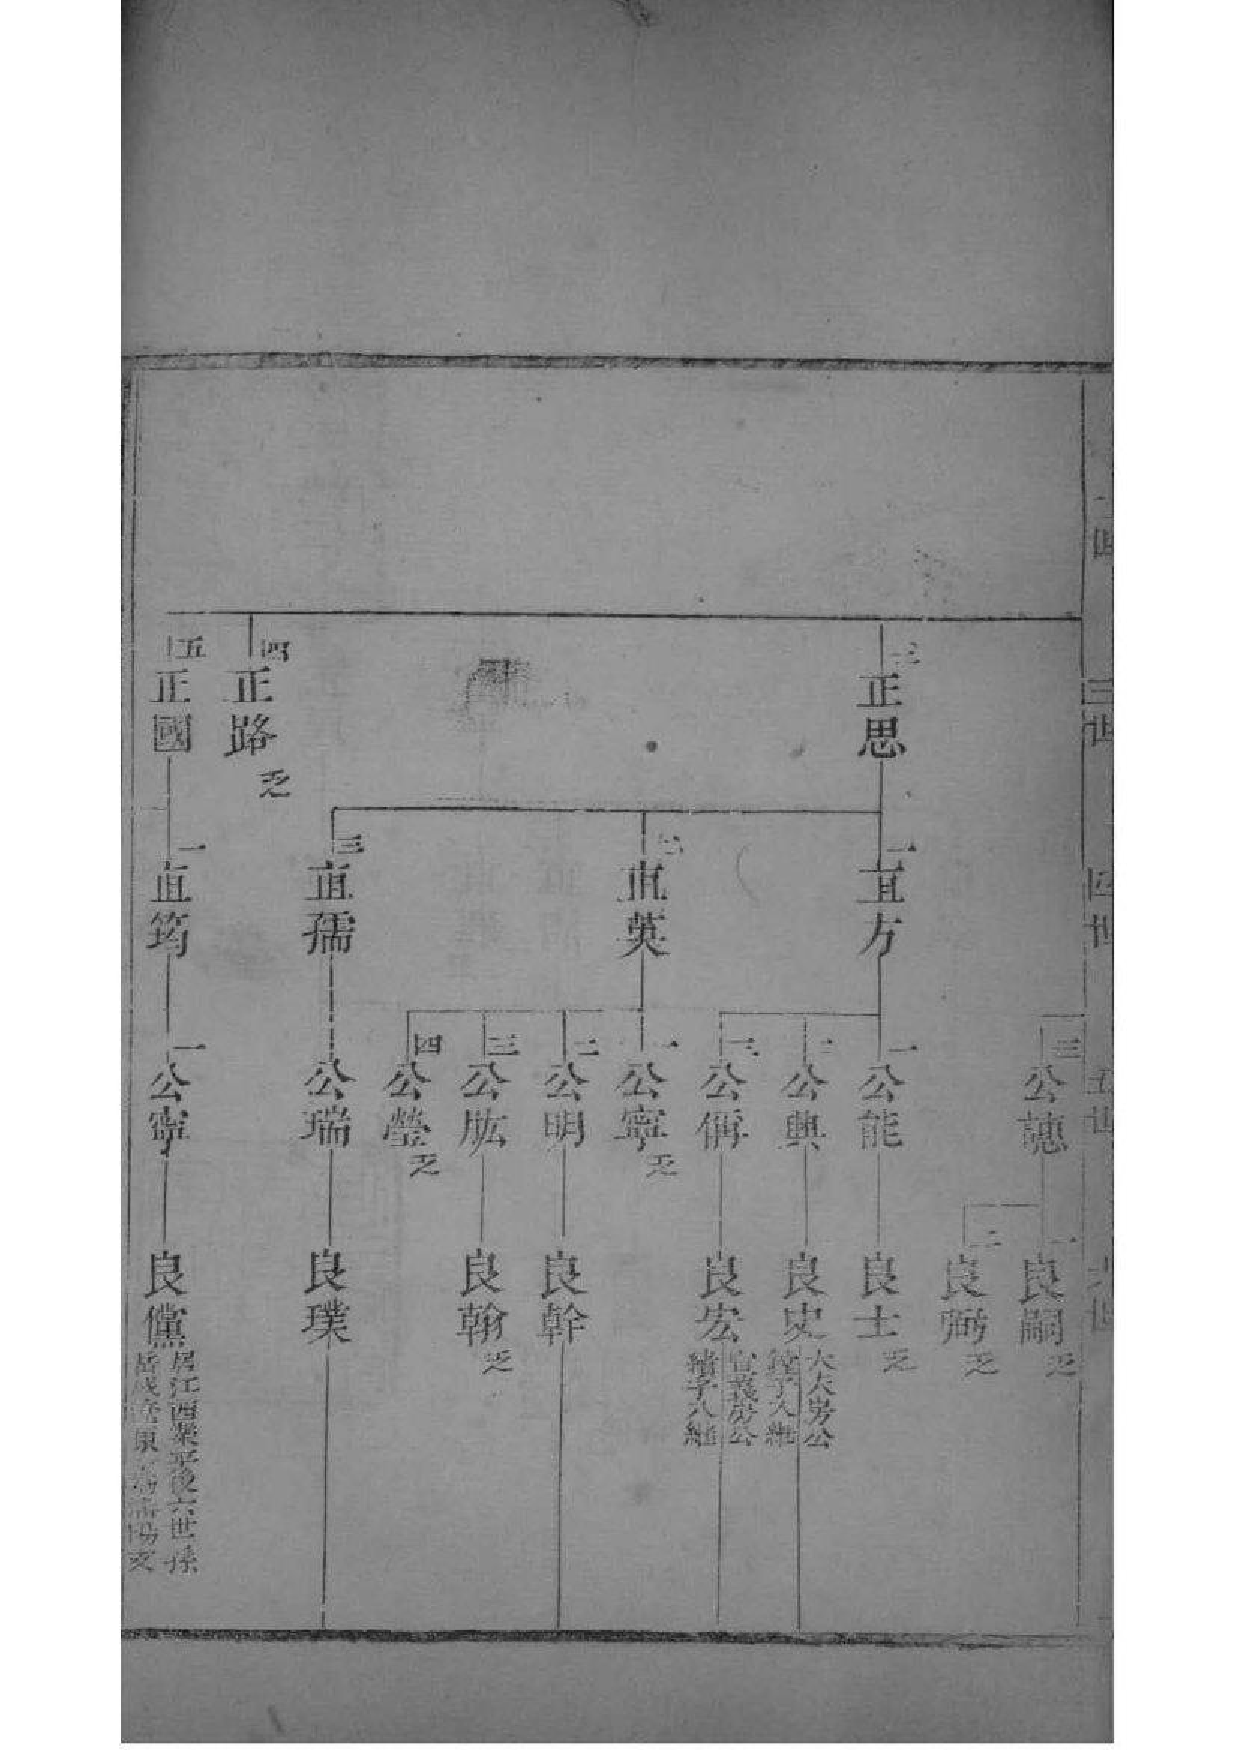 三世
四世
五世
六世
三
公譓
一
良嗣
乏
二
良弼
乏
三
正思
一
直方
一
公能
良士
乏
二
公輿
良史
大大房公
續子入継
三
公偁
良宏
宣義房公
續子入継
二
直英
一
公寧
乏
二
公明
良幹
三
公肱
良翰
乏
四
公瑩
乏
三
直孺
公瑞
良璞
四
正路
乏
五
正國
一
直筠
一
公寧
良儻
居江西樂平後六世孫